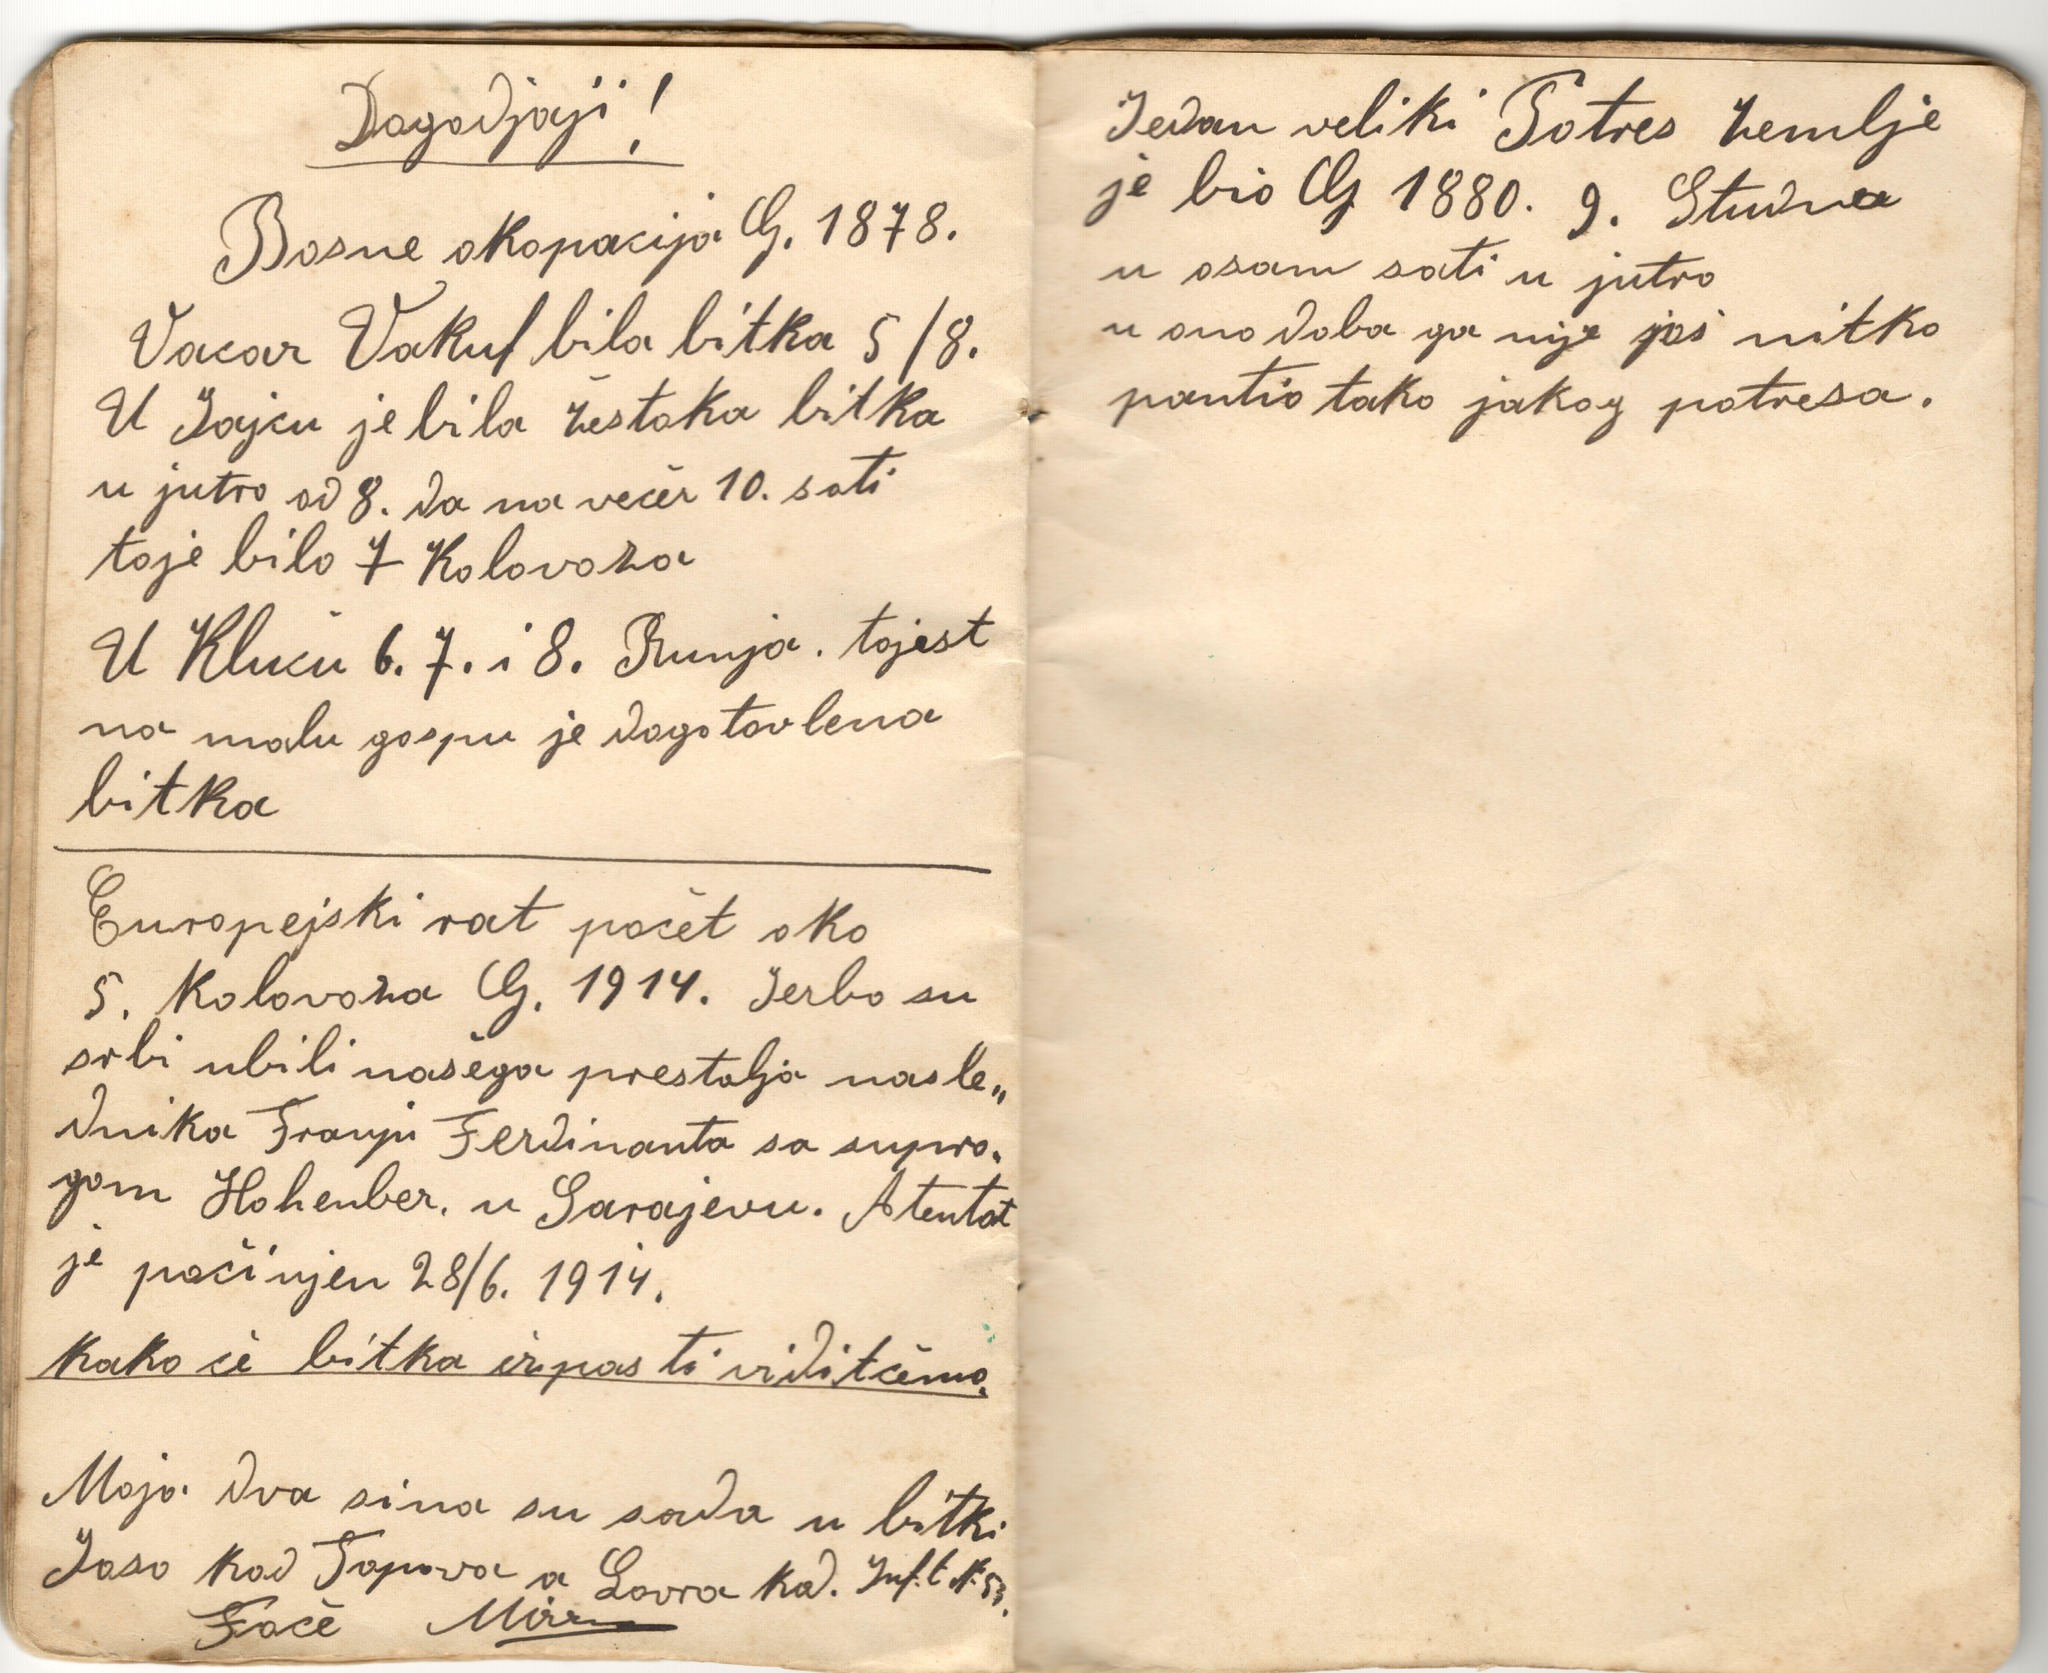 Dogodjaji!
Bosne okopacija G. 1878.
Vacar Vakuf bila bitka 5/8.
U Jajcu je bila žestoka bitka
u jutro od 8. da na večer 10. sati
toje bilo 7 Kolovoza
U Kluču 6. 7. i 8. Runja. tojest
na malu gospu je dogotovlena
bitka
Europejski rat počet oko
5. Kolovoza G. 1914. Jerbo su
srbi ubili našega prestolja nasle„
dnika Franju Ferdinanta sa supro„
gom Hohenber. u Sarajevu. Atentat
je počinjen 28/6. 1914.
kako če bitka izpasti viditčemo.
Moja dva sina su sada u bitki
Joso kod Topova a Lovra kod. Inf.t N. 53.
Foče
Jedan veliki Potres zemlje
je bio G 1880. 9. Studna
u osam sati u jutro
u ono doba ga nije još nitko
pantio tako jakog potresa.